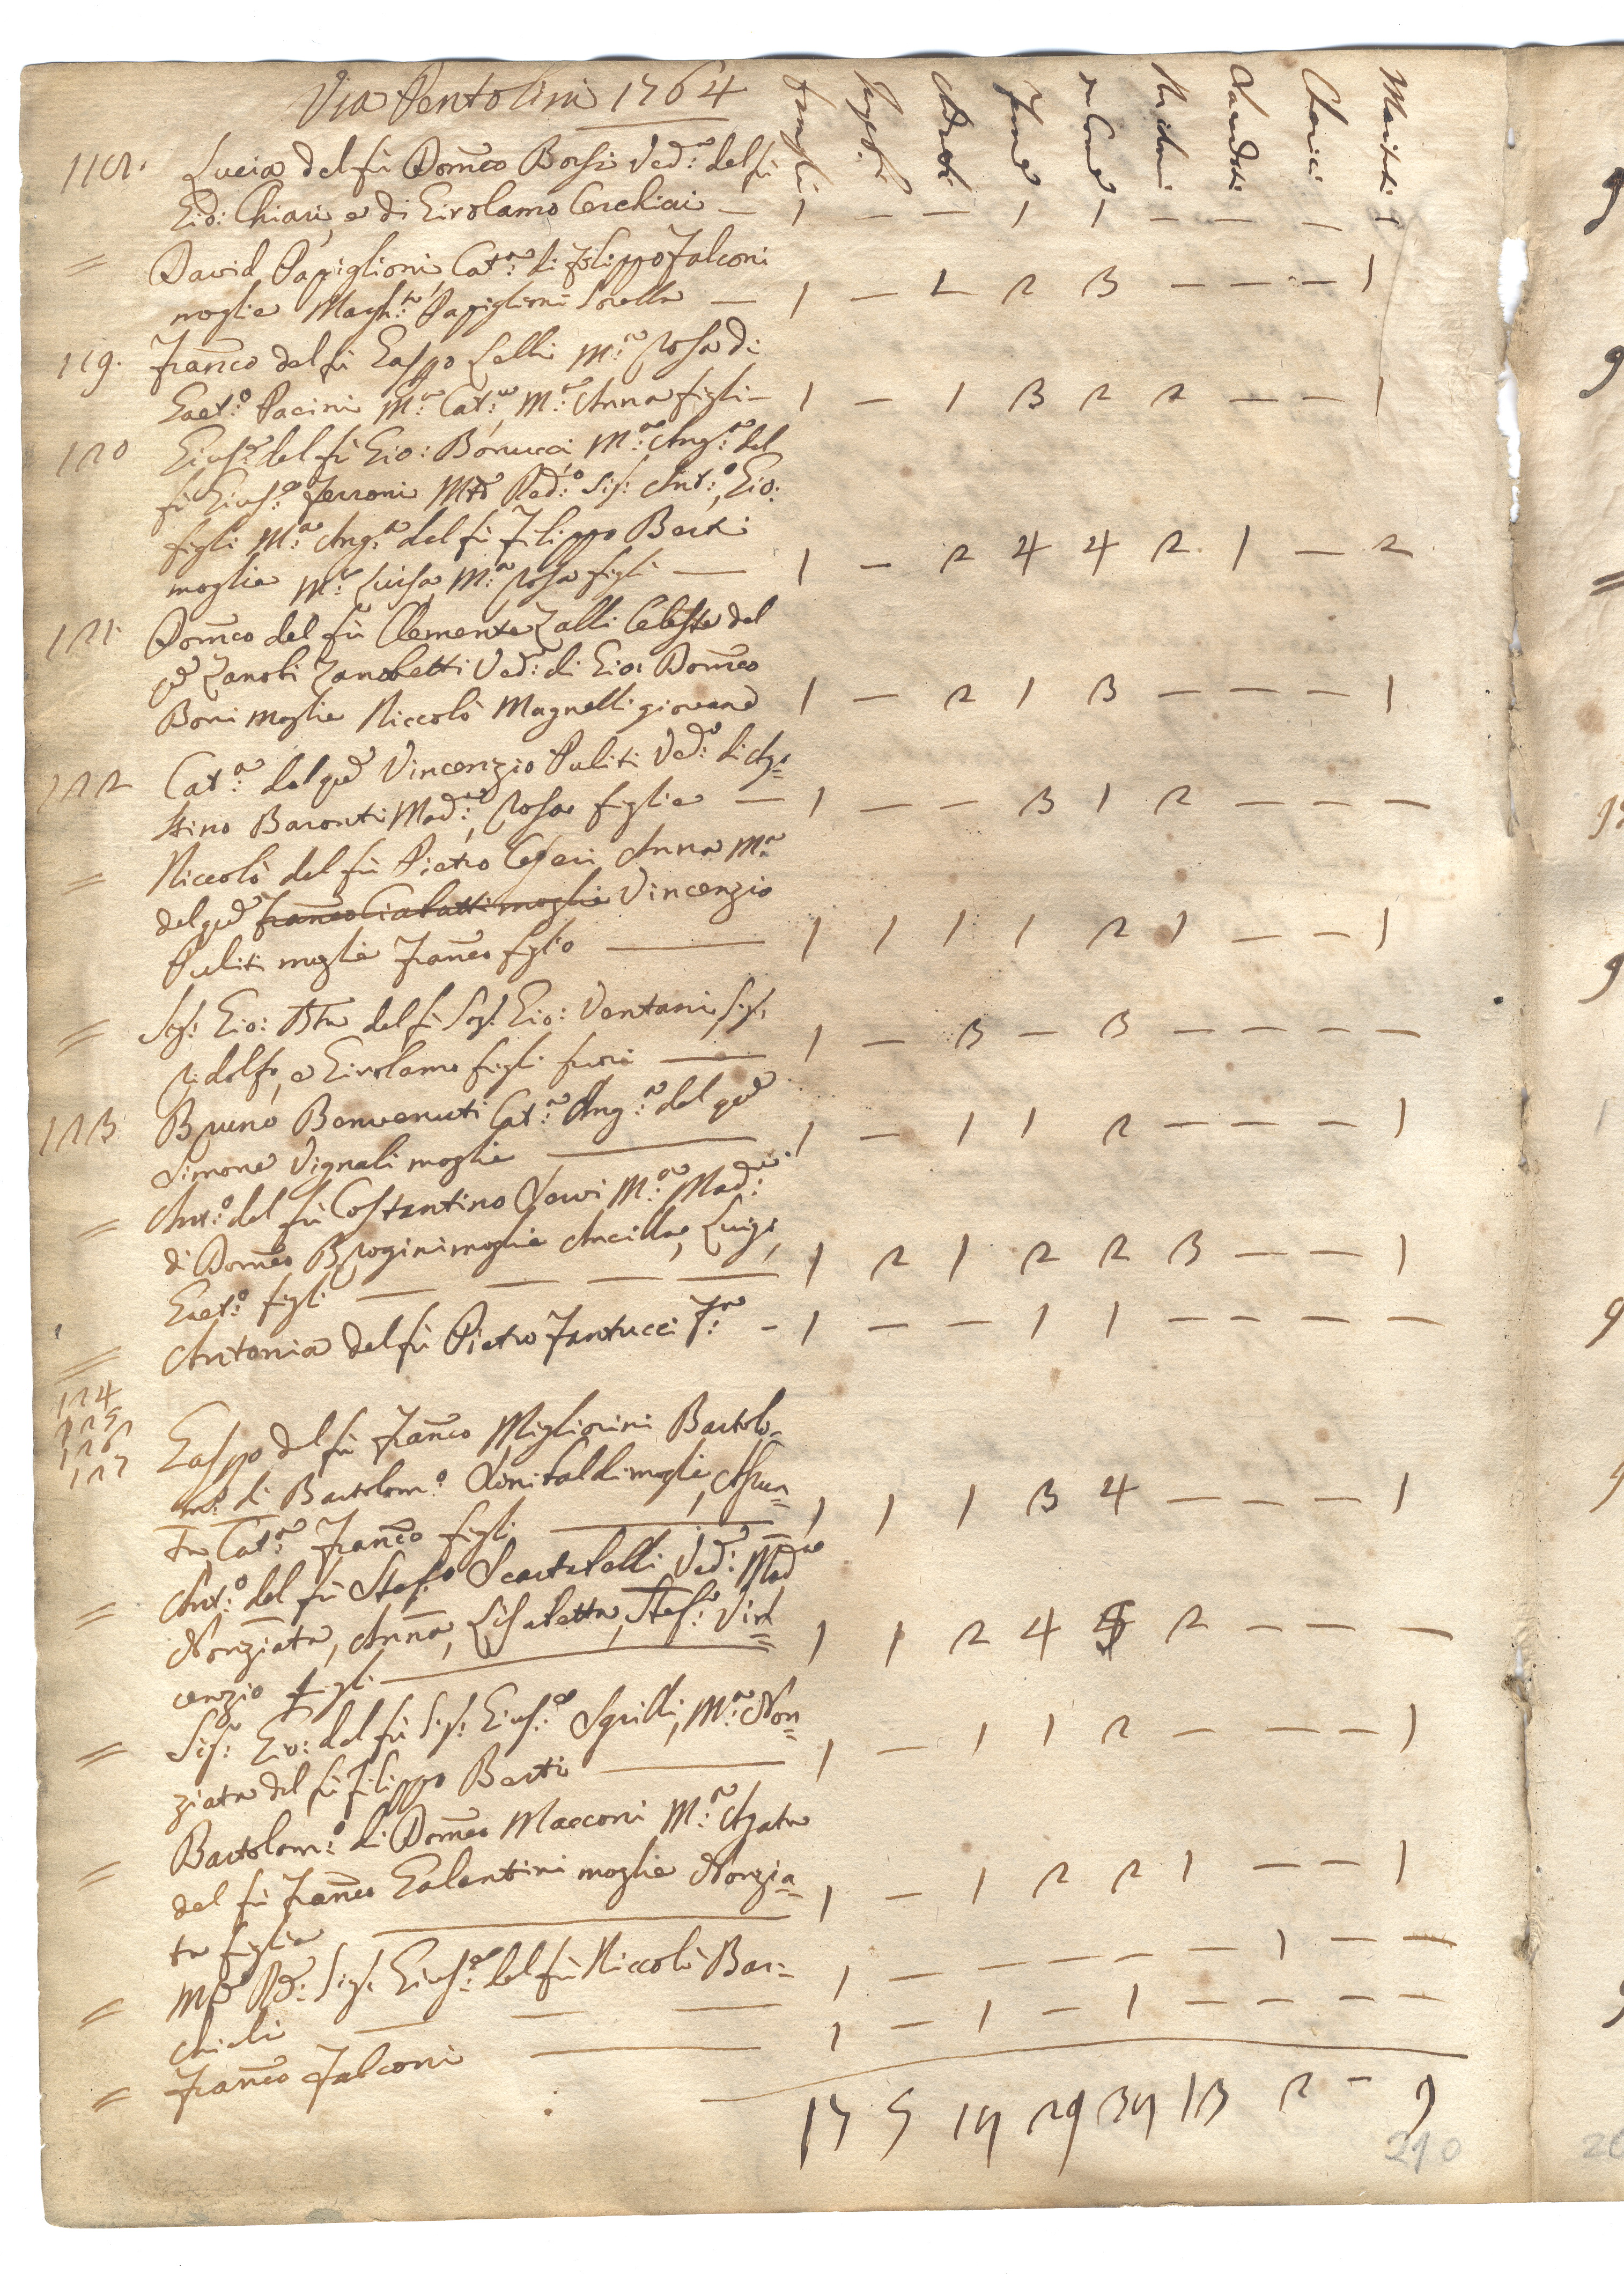 Via Pentolini 1764
Famiglie Donne Chierici Mariti
118. Lucia del fù Domco Borsi Ved:a del fù
Gio: Chiari, e di Girolamo Cerchiai — 1 — — 1 1 — — — 1
= David Papiglioni, Cat:a di Filippo Falconi
moglie Margh:ta Papiglioni Sorella — 1 — 1 2 3 — — — 1
119. Franco del fù Gaspo Lelli M:a Rosa di
Gaet:o Pacini M:a Cat:a, M:a Anna figli — 1 — 1 3 2 2 — — 1
120 Gius:e del fù Gio: Bonucci, M:a Ang:a del
fù Gius:e Ferroni Mto Red:o Sig: Ant:o, Gio:
figli M:a Ang:a del fù Filippo Berti
moglie M:a Luisa, M:a Rosa figli — 1 — 2 4 4 2 1 — 2
121. Domco del fù Clemente Zalli Celeste del
qd Zanobi Zanobetti Ved: di Gio: Domco
Boni moglie Niccolò Magnelli giovane 1 — 2 1 3 — — — 1
122 Cat:a del qd Vincenzio Puliti Ved:a di Ago=
stino Baronti Mad:a, Rosa figlie — 1 — — 3 1 2 — — —
= Niccolò del fù Pietro Ceseri, Anna M:a
del qd Franco Ciabatti moglie Vincenzio
Puliti moglie Franco figlio — 1 1 1 1 2 1 — — 1
= Sig: Gio: Bta del fù Sig: Gio: Ventani, Sig:
Ridolfo, e Girolamo figli fuori — 1 — 3 — 3 — — — —
123 Bruno Benvenuti Cat:a Ang:a del qd
Simone Vignali moglie — 1 — 1 1 2 — — — 1
= Ant:o del fù Costantino M:a Mad:a
di Domco Brogini moglie Ancilla, Luigi,
Gaet:o figli — — — — 1 2 1 2 2 3 — — 1
= Antonia del fù Pietro Fantucci F:a — 1 — — 1 1 — — — —
124
125
126
127
Gaspo del fù Franco Migliorini Bartolo-
m:a di Bartolom:o Sinibaldi moglie, Assun=
ta, Cat:a Franco figli — 1 1 1 3 4 — — — 1
= Ant:o del fù Stef:o Scartabelli Ved: Mad:a
Nonziata, Anna, Elisabetta, Stef:o Vin=
cenzio figli — 1 1 2 4 5 2 — — —
= Sig: Gio: del fù Sig: Gius:e Sgrilli, M:a Non=
ziata del fù Filippo Berti — 1 — 1 1 2 — — — 1
= Bartolom:o di Domco Macconi M:a Agata
del fù Franco Galantini moglie Nonzia=
ta figlia — 1 — 1 2 2 1 — — 1
= Mto Rd: Sig: Gius:e del fù Niccolò Bar=
chieli — — — 1 — — — — — 1 — —
= Franco Falconi — 1 — 1 — 1 — — — —
17 5 17 29 37 13 2 — 9
210